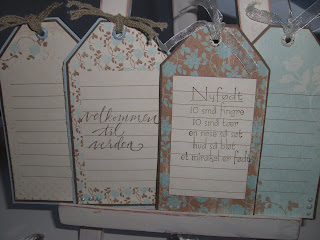 velkommen
til
verden
Nyfødt
10 små fingre
10 små tær
en nese så søt
hud så bløt
et mirakel er født